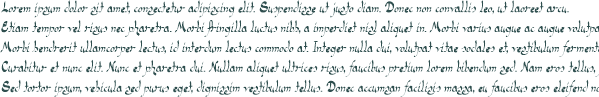 Lorem ipsum dolor sit amet, consectetur adipiscing elit. Suspendisse ut justo diam. Donec non convallis leo, ut laoreet arcu.
Etiam tempor vel risus nec pharetra. Morbi fringilla luctus nibh, a imperdiet nisl aliquet in. Morbi varius augue ac augue volutpa
Morbi hendrerit ullamcorper lectus, id interdum lectus commodo at. Integer nulla dui, volutpat vitae sodales et, vestibulum ferment
Curabitur et nunc elit. Nunc et pharetra dui. Nullam aliquet ultrices risus, faucibus pretium lorem bibendum sed. Nam eros tellus,
Sed tortor ipsum, vehicula sed purus eget, dignissim vestibulum tellus. Donec accumsan facilisis magna, eu faucibus eros eleifend no